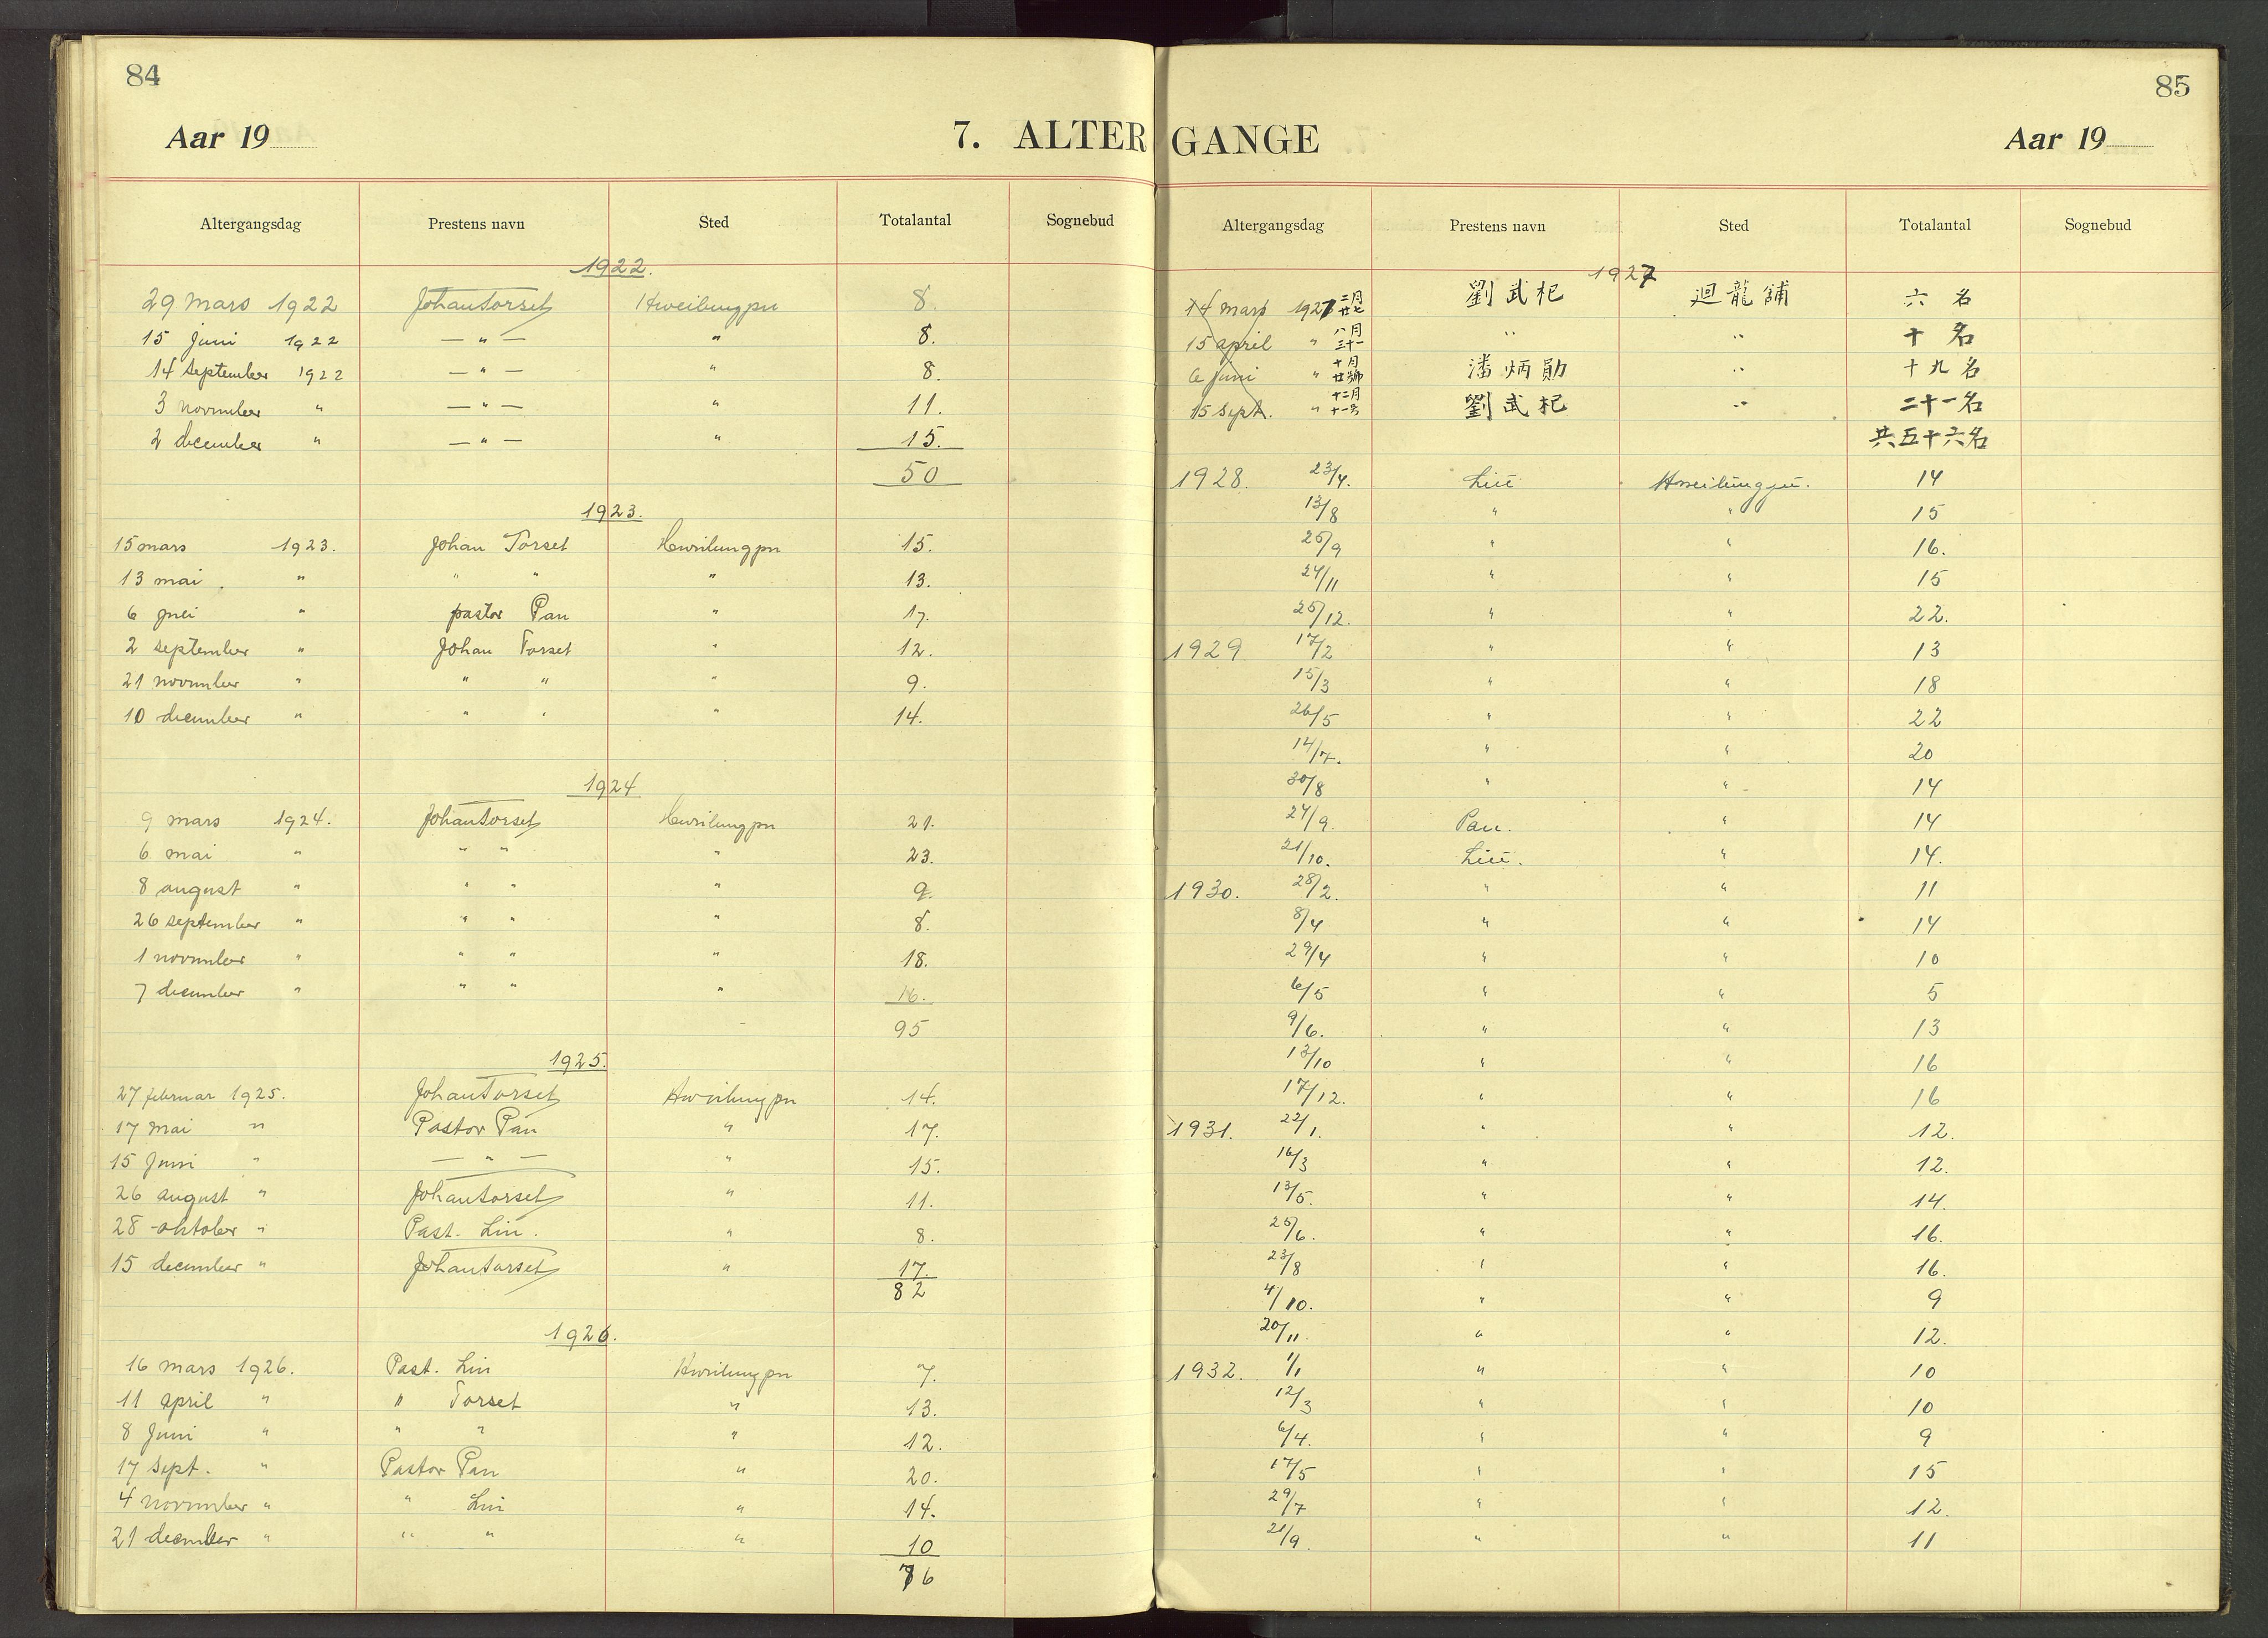 84
Aar 19
7. ALTER
Altergangsdag Prestens navn Sted Totalantal Sognebud
1922.
29 mars 1922 Johan Torset Hweilungpu 8.
15 juni 1922 — " — " 8.
14 september 1922 — " — " 8.
3 november " — " — " 11.
2 december " — " — " 15.
50
1923.
15 mars 1923. Johan Torset Hweilungpu 15.
13 mai " " " " 13.
6 juli " pastor Pan " 17.
2 september " Johan Torset " 12.
21 november " " " " 9.
10 december " " " " 14.
1924
9 mars 1924. Johan Torset Hweilungpu 21.
6 mai " " " " 23.
8 august " " " " 9.
26 september " " " " 8.
1 november " " " " 18.
7 december " " " " 16.
95
1925.
27 februar 1925. Johan Torset Hweilungpu 14.
17 mai " Pastor Pan " 17.
15 juni " — " — " 15.
26 august " Johan Torset " 11.
28 oktober " Past. Liu. " 8.
15 december " Johan Torset " 17.
82
1926.
16 mars 1926. Past. Liu Hweilungpu 7.
11 april " " Torset " 13.
8 juni " " " " 12.
17 sept. " Pastor Pan " 20.
4 november " " Liu " 14.
21 december " " " " 10
76
85
GANGE
Aar 19
Altergangsdag Prestens navn Sted Totalantal Sognebud
1927
14 mars 1927 二月廿七 劉武杞 迴龍舖 六名
15 april " 八月三十一 " " 十名
6 juni " 十月廿號 潘炳勛 " 十九名
15 sept. " 十二月十一号 劉武杞 " 二十一名
共五十六名
1928. 23/4. Liu Hweilungpu. 14
13/8 " " 15
25/9 " " 16.
24/11 " " 15
25/12. " " 22.
1929 17/2 " " 13
15/3 " " 18
26/5 " " 22
14/7. " " 20
30/8 " " 14
24/9. Pan. " 14
21/10. Liu. " 14.
1930. 28/2. " " 11
8/4 " " 14
29/4 " " 10
6/5 " " 5
9/6. " " 13
13/10 " " 16
17/12. " " 16
1931. 22/1. " " 12.
16/3 " " 12.
13/5. " " 14.
25/6. " " 16.
23/8 " " 16.
4/10. " " 9
20/11. " " 12.
1932. 1/1 " " 10
12/3 " " 10
6/4. " " 9
17/5 " " 15
29/7 " " 12.
21/9. " " 11